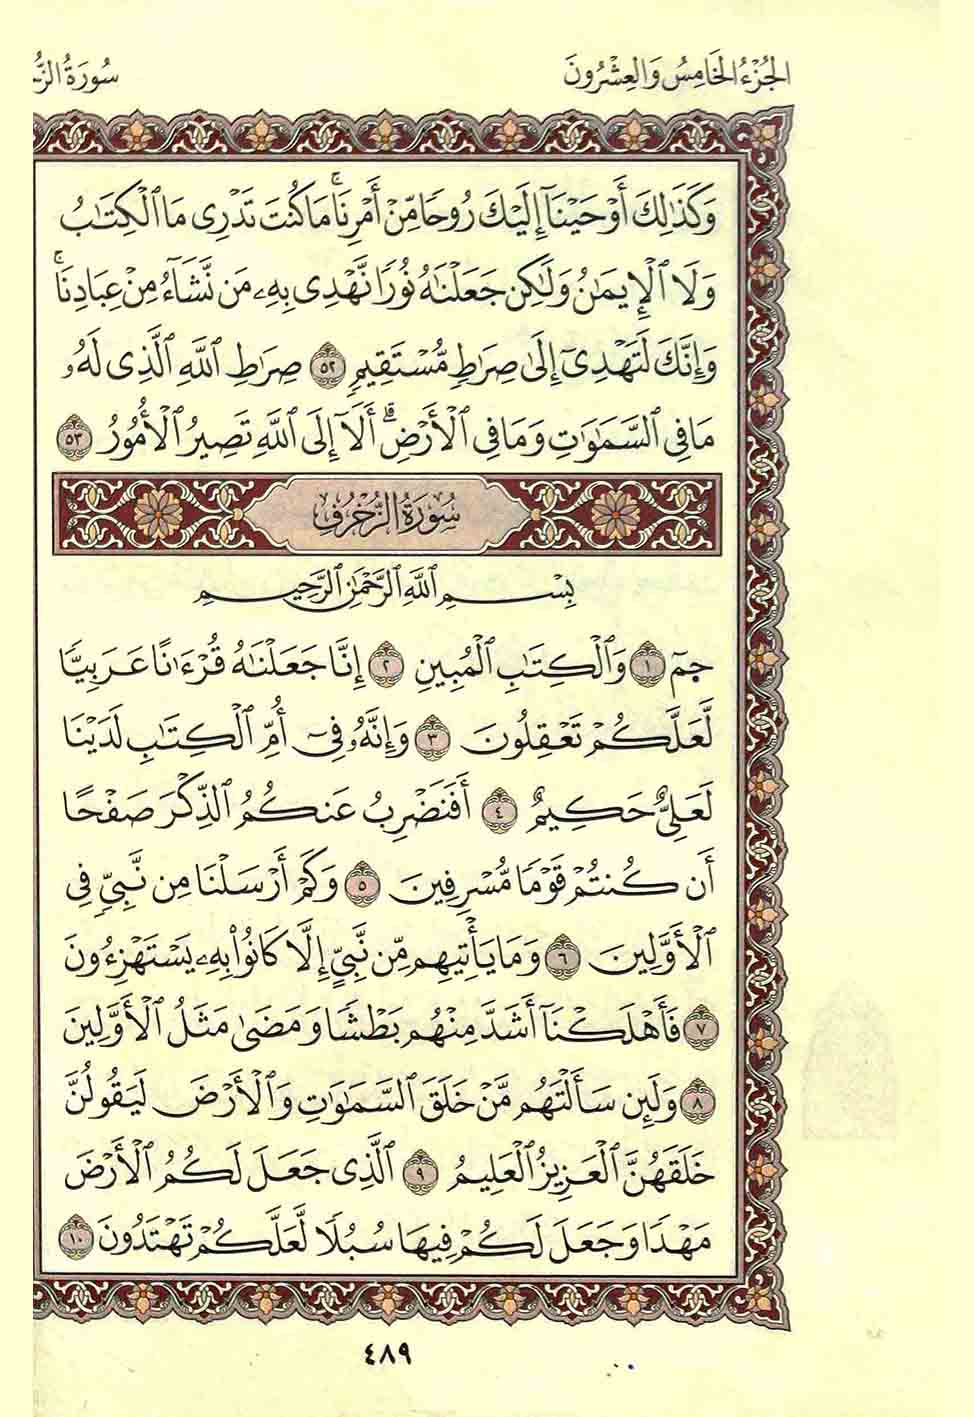 الجُزْءُ الخَامِسُ وَالعِشْرُونَ
سُورَةُ الزُّ
وَكَذَٰلِكَ أَوْحَيْنَآ إِلَيْكَ رُوحًا مِّنْ أَمْرِنَا ۚ مَا كُنتَ تَدْرِى مَا ٱلْكِتَٰبُ
وَلَا ٱلْإِيمَٰنُ وَلَٰكِن جَعَلْنَٰهُ نُورًا نَّهْدِى بِهِۦ مَن نَّشَآءُ مِنْ عِبَادِنَا ۚ
وَإِنَّكَ لَتَهْدِىٓ إِلَىٰ صِرَٰطٍ مُّسْتَقِيمٍ ٥٢ صِرَٰطِ ٱللَّهِ ٱلَّذِى لَهُۥ
مَا فِى ٱلسَّمَٰوَٰتِ وَمَا فِى ٱلْأَرْضِ ۗ أَلَآ إِلَى ٱللَّهِ تَصِيرُ ٱلْأُمُورُ ٥٣
سُورَةُ الزُّخْرُفِ
بِسْمِ ٱللَّهِ ٱلرَّحْمَٰنِ ٱلرَّحِيمِ
حمٓ ١ وَٱلْكِتَٰبِ ٱلْمُبِينِ ٢ إِنَّا جَعَلْنَٰهُ قُرْءَٰنًا عَرَبِيًّا
لَّعَلَّكُمْ تَعْقِلُونَ ٣ وَإِنَّهُۥ فِىٓ أُمِّ ٱلْكِتَٰبِ لَدَيْنَا
لَعَلِىٌّ حَكِيمٌ ٤ أَفَنَضْرِبُ عَنكُمُ ٱلذِّكْرَ صَفْحًا
أَن كُنتُمْ قَوْمًا مُّسْرِفِينَ ٥ وَكَمْ أَرْسَلْنَا مِن نَّبِىٍّ فِى
ٱلْأَوَّلِينَ ٦ وَمَا يَأْتِيهِم مِّن نَّبِىٍّ إِلَّا كَانُوا۟ بِهِۦ يَسْتَهْزِءُونَ
٧ فَأَهْلَكْنَآ أَشَدَّ مِنْهُم بَطْشًا وَمَضَىٰ مَثَلُ ٱلْأَوَّلِينَ
٨ وَلَئِن سَأَلْتَهُم مَّنْ خَلَقَ ٱلسَّمَٰوَٰتِ وَٱلْأَرْضَ لَيَقُولُنَّ
خَلَقَهُنَّ ٱلْعَزِيزُ ٱلْعَلِيمُ ٩ ٱلَّذِى جَعَلَ لَكُمُ ٱلْأَرْضَ
مَهْدًا وَجَعَلَ لَكُمْ فِيهَا سُبُلًا لَّعَلَّكُمْ تَهْتَدُونَ ١٠
٤٨٩